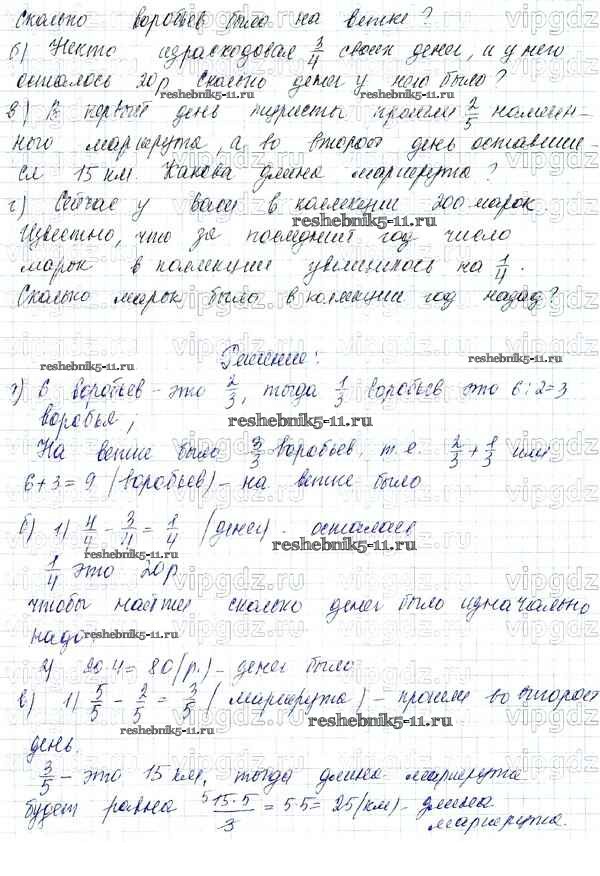 Сколько воробьев было на ветке?
б) Некто израсходовал 3/4 своих денег, и у него
осталось 20р. Сколько денег у него было?
в) В первый день туристы прошли 2/5 намечен-
ного маршрута, а во второй день оставшие-
ся 15 км. Какова длина маршрута?
г) Сейчас у Васи в коллекции 200 марок.
Известно, что за последний год число
марок в коллекции увеличилось на 1/4.
Сколько марок было в коллекции год назад?
Решение:
6 воробьев - это 2/3, тогда 1/3 воробьев это 6:2=3
воробья,
На ветке было 3/3 воробьев, т.е. 2/3 + 1/3 или
6+3=9 (воробьев) - на ветке было
б) 1) 4/4 - 3/4 = 1/4 (денег) - осталось
1/4 это 20р
чтобы найти сколько денег было изначально
надо
2) 20·4=80(р.) - денег было
в) 1) 5/5 - 2/5 = 3/5 (маршрута) - прошли во второй
день.
3/5 - это 15 км, тогда длина маршрута
будет равна 15·5/3 = 5·5 = 25(км) - длина
маршрута.
reshebnik5-11.ru
vipgdz.ru